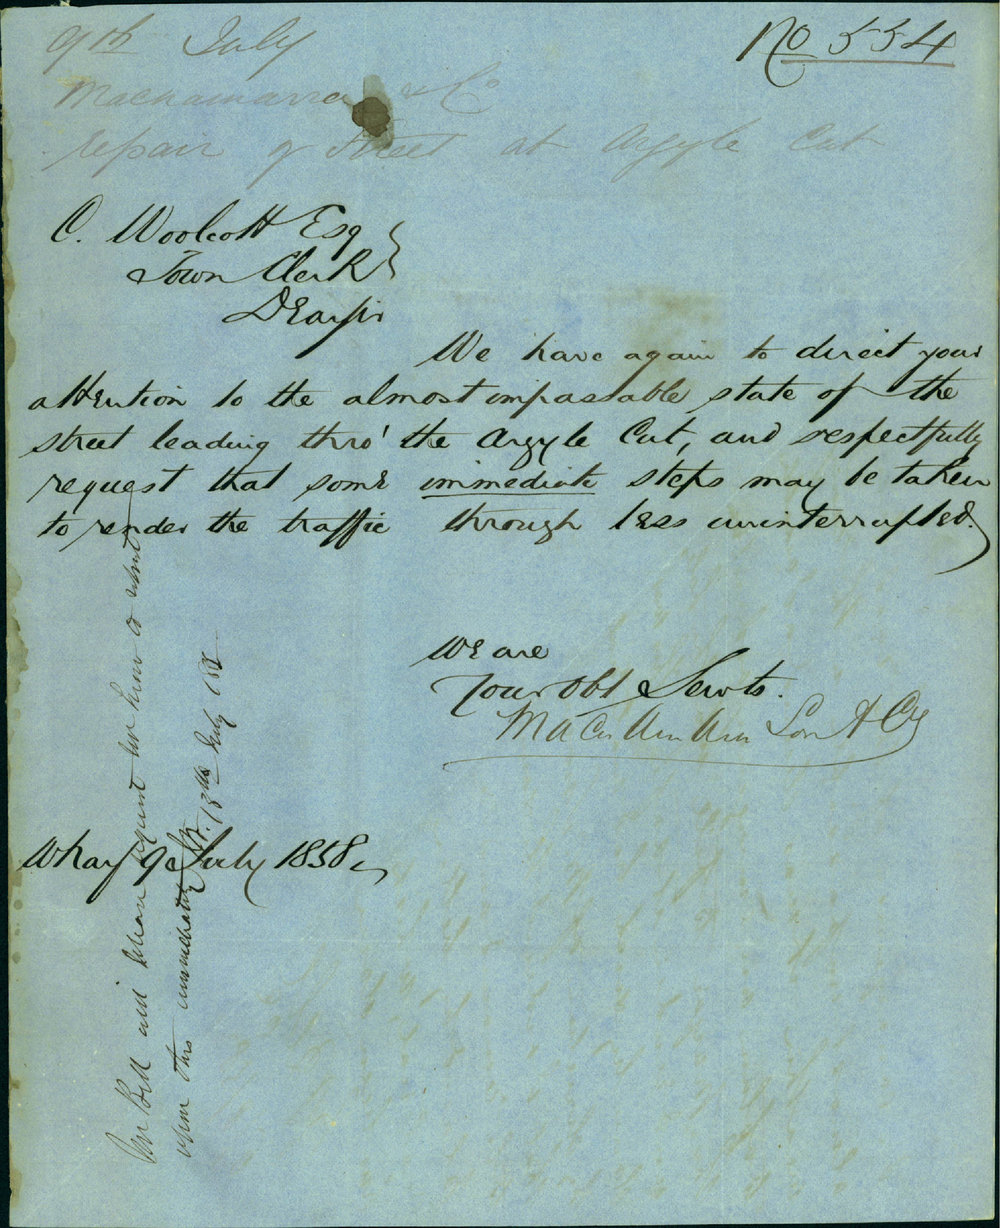 9th July
No 554
Macnamara & Co
repair of Street at Argyle Cut
C. Woolcott Esq
Town Clerk
DEar Sir
We have again to direct your
attention to the almost impassable state of the
street leading thro' the Argyle Cut, and respectfully
request that somE immediate steps may be taken
to render the traffic through lEss uninterruptEd.
WE are
Your Obt Servts.
Son & Co
Wharf 9 July 1858
Mr Bell will please report
upon this immediately 13th July 158